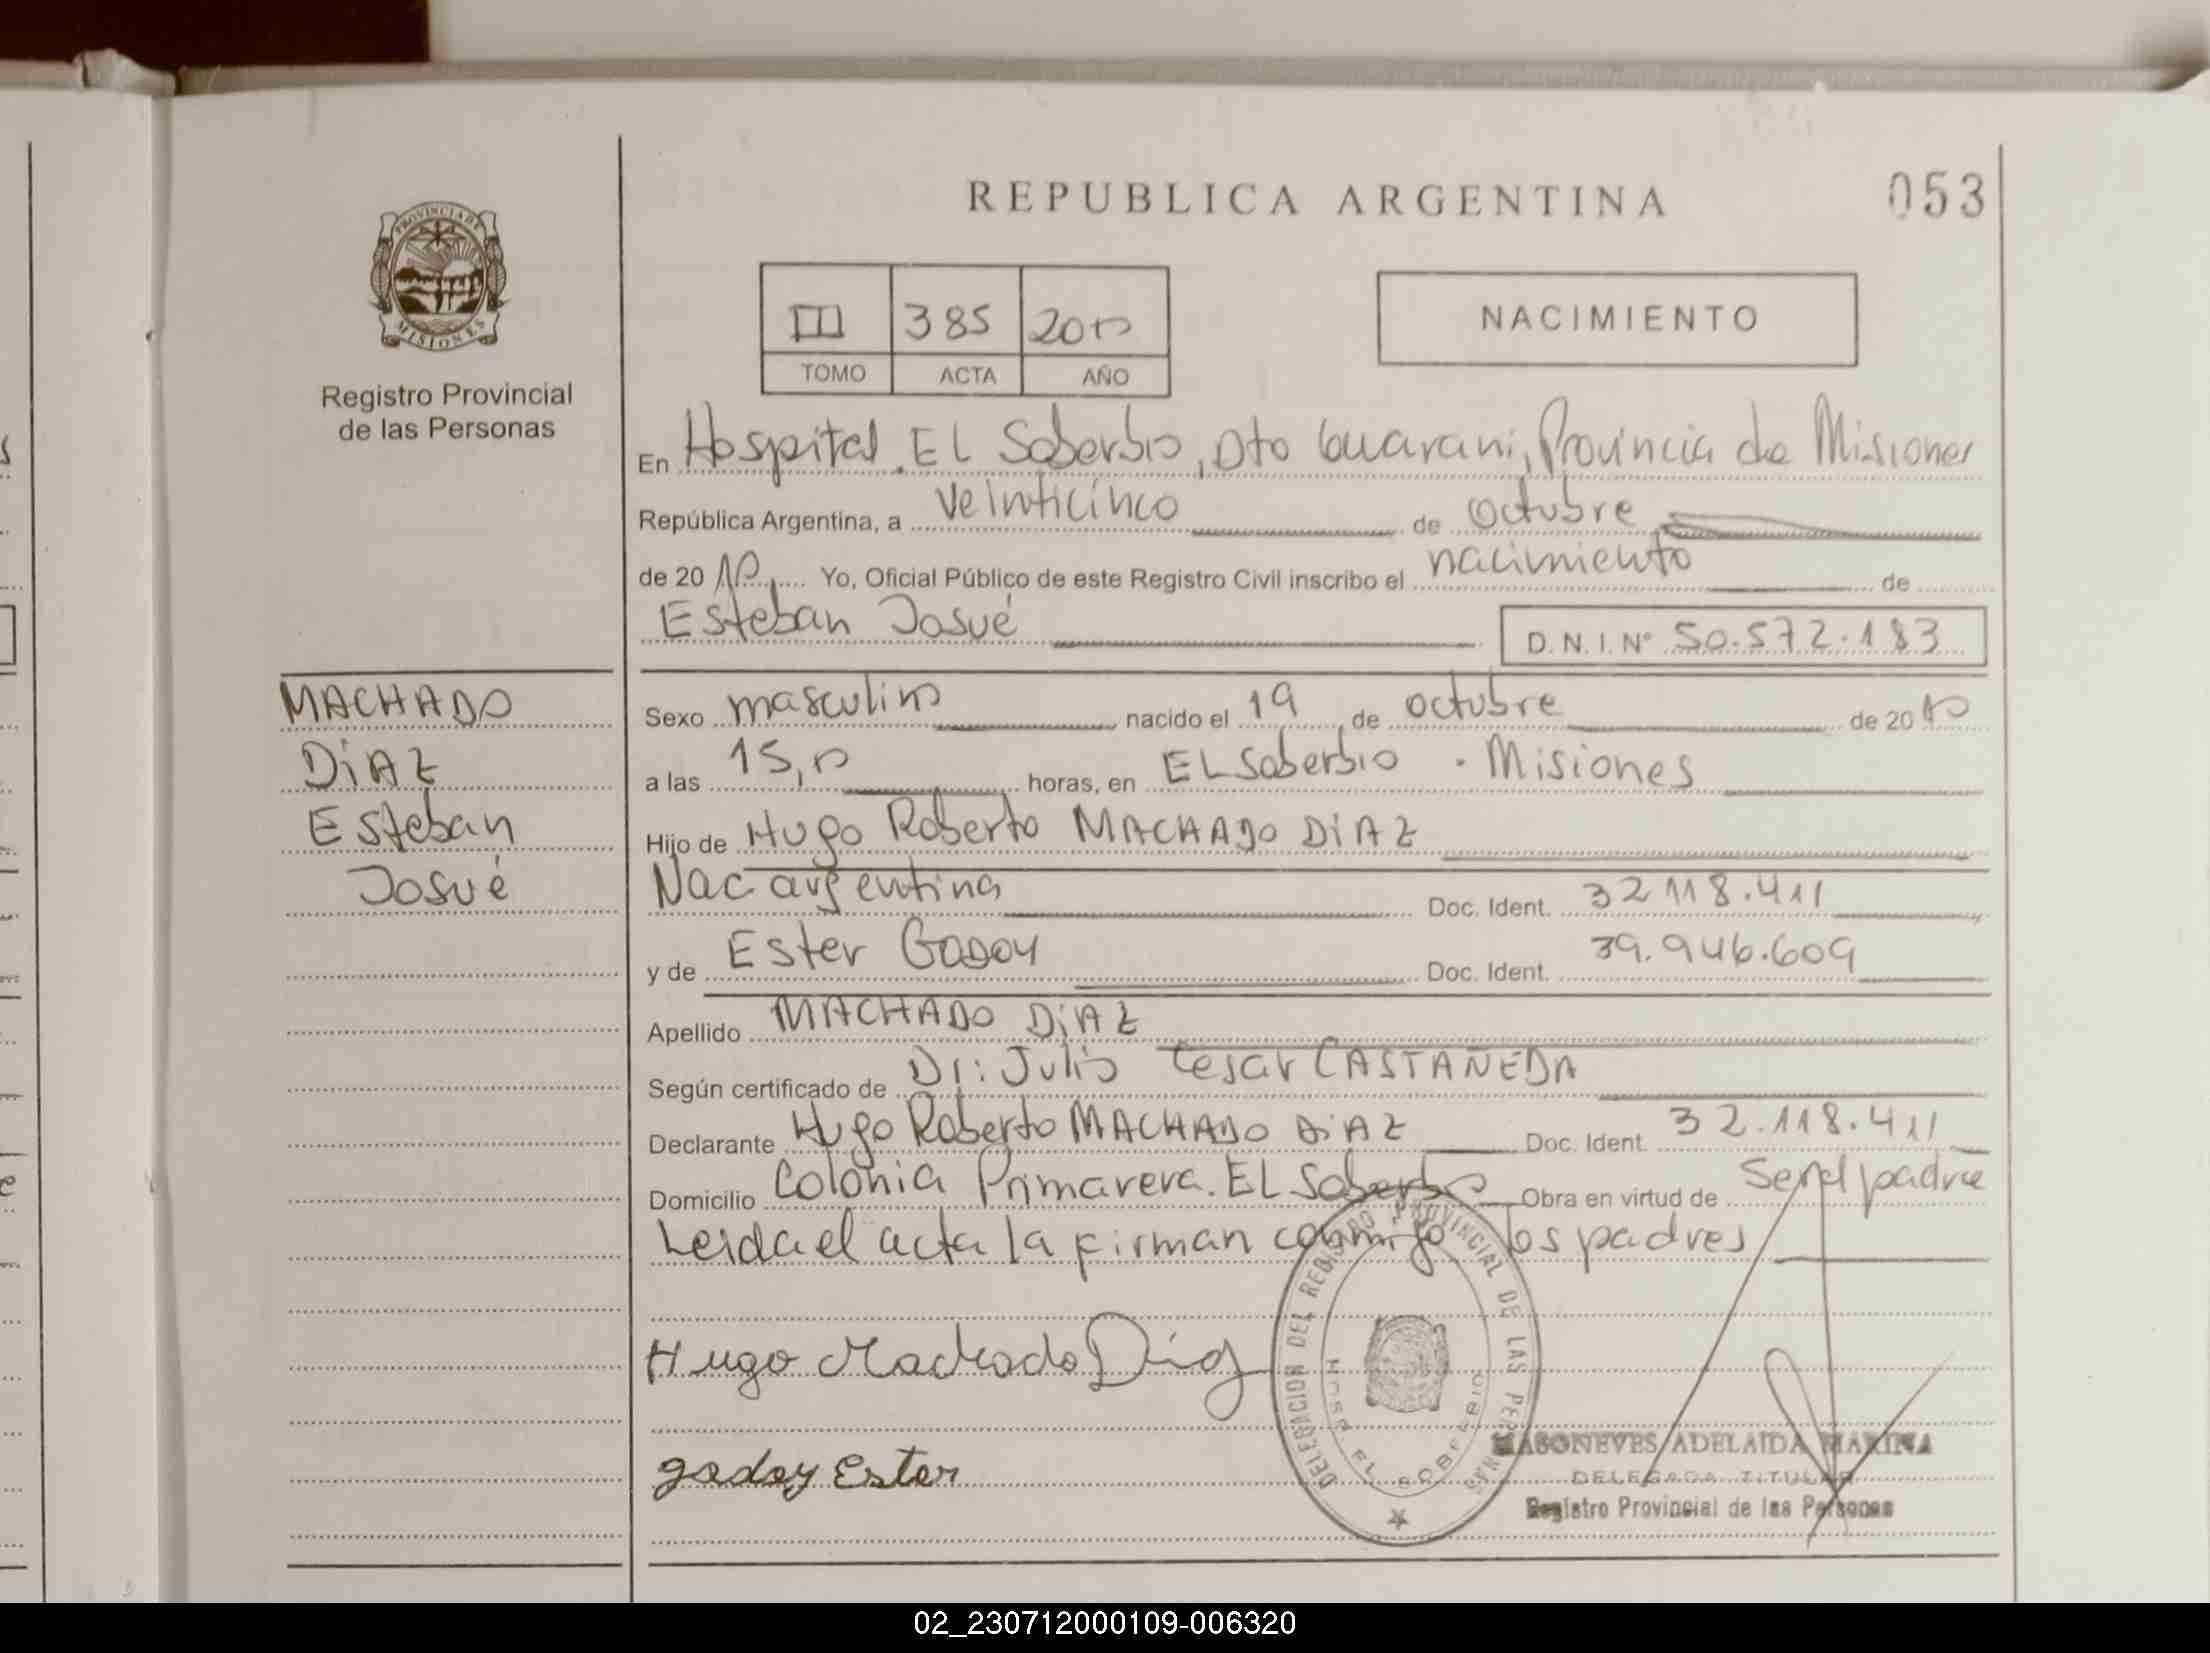 REPUBLICA ARGENTINA
053
PROVINCIA DE
MISIONES
Registro Provincial
de las Personas
III 385 2010
TOMO ACTA AÑO
NACIMIENTO
En Hospital. EL Soberbio, Dto Guarani, Provincia de Misiones
República Argentina, a veinticinco de octubre
de 20 10 Yo, Oficial Público de este Registro Civil inscribo el nacimiento de
Esteban Josué D.N.I. Nº 50.572.183
MACHADO
DiAZ
Esteban
Josué
Sexo masculino nacido el 19 de octubre de 20 10
a las 15,10 horas, en EL Soberbio - Misiones
Hijo de Hugo Roberto MACHADO DiAZ
Nac argentina Doc. Ident. 32 118.411
y de Ester GODOY Doc. Ident. 39.946.609
Apellido MACHADO DiAZ
Según certificado de Dr: Julio Cesar CASTAÑEDA
Declarante Hugo Roberto MACHADO DiAZ Doc. Ident. 32.118.411
Domicilio Colonia Primavera. EL Soberbio Obra en virtud de Ser el padre
Leida el acta la firman conmigo los padres
Hugo Machado Diaz
godoy Ester
DELEGACION DEL REGISTRO PROVINCIAL DE LAS PERSONAS
EL SOBERBIO
MASONEVES ADELAIDA MARINA
DELEGADA TITULAR
Registro Provincial de las Personas
02_230712000109-006320